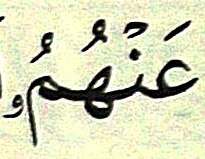 عَنْهُمُۥ